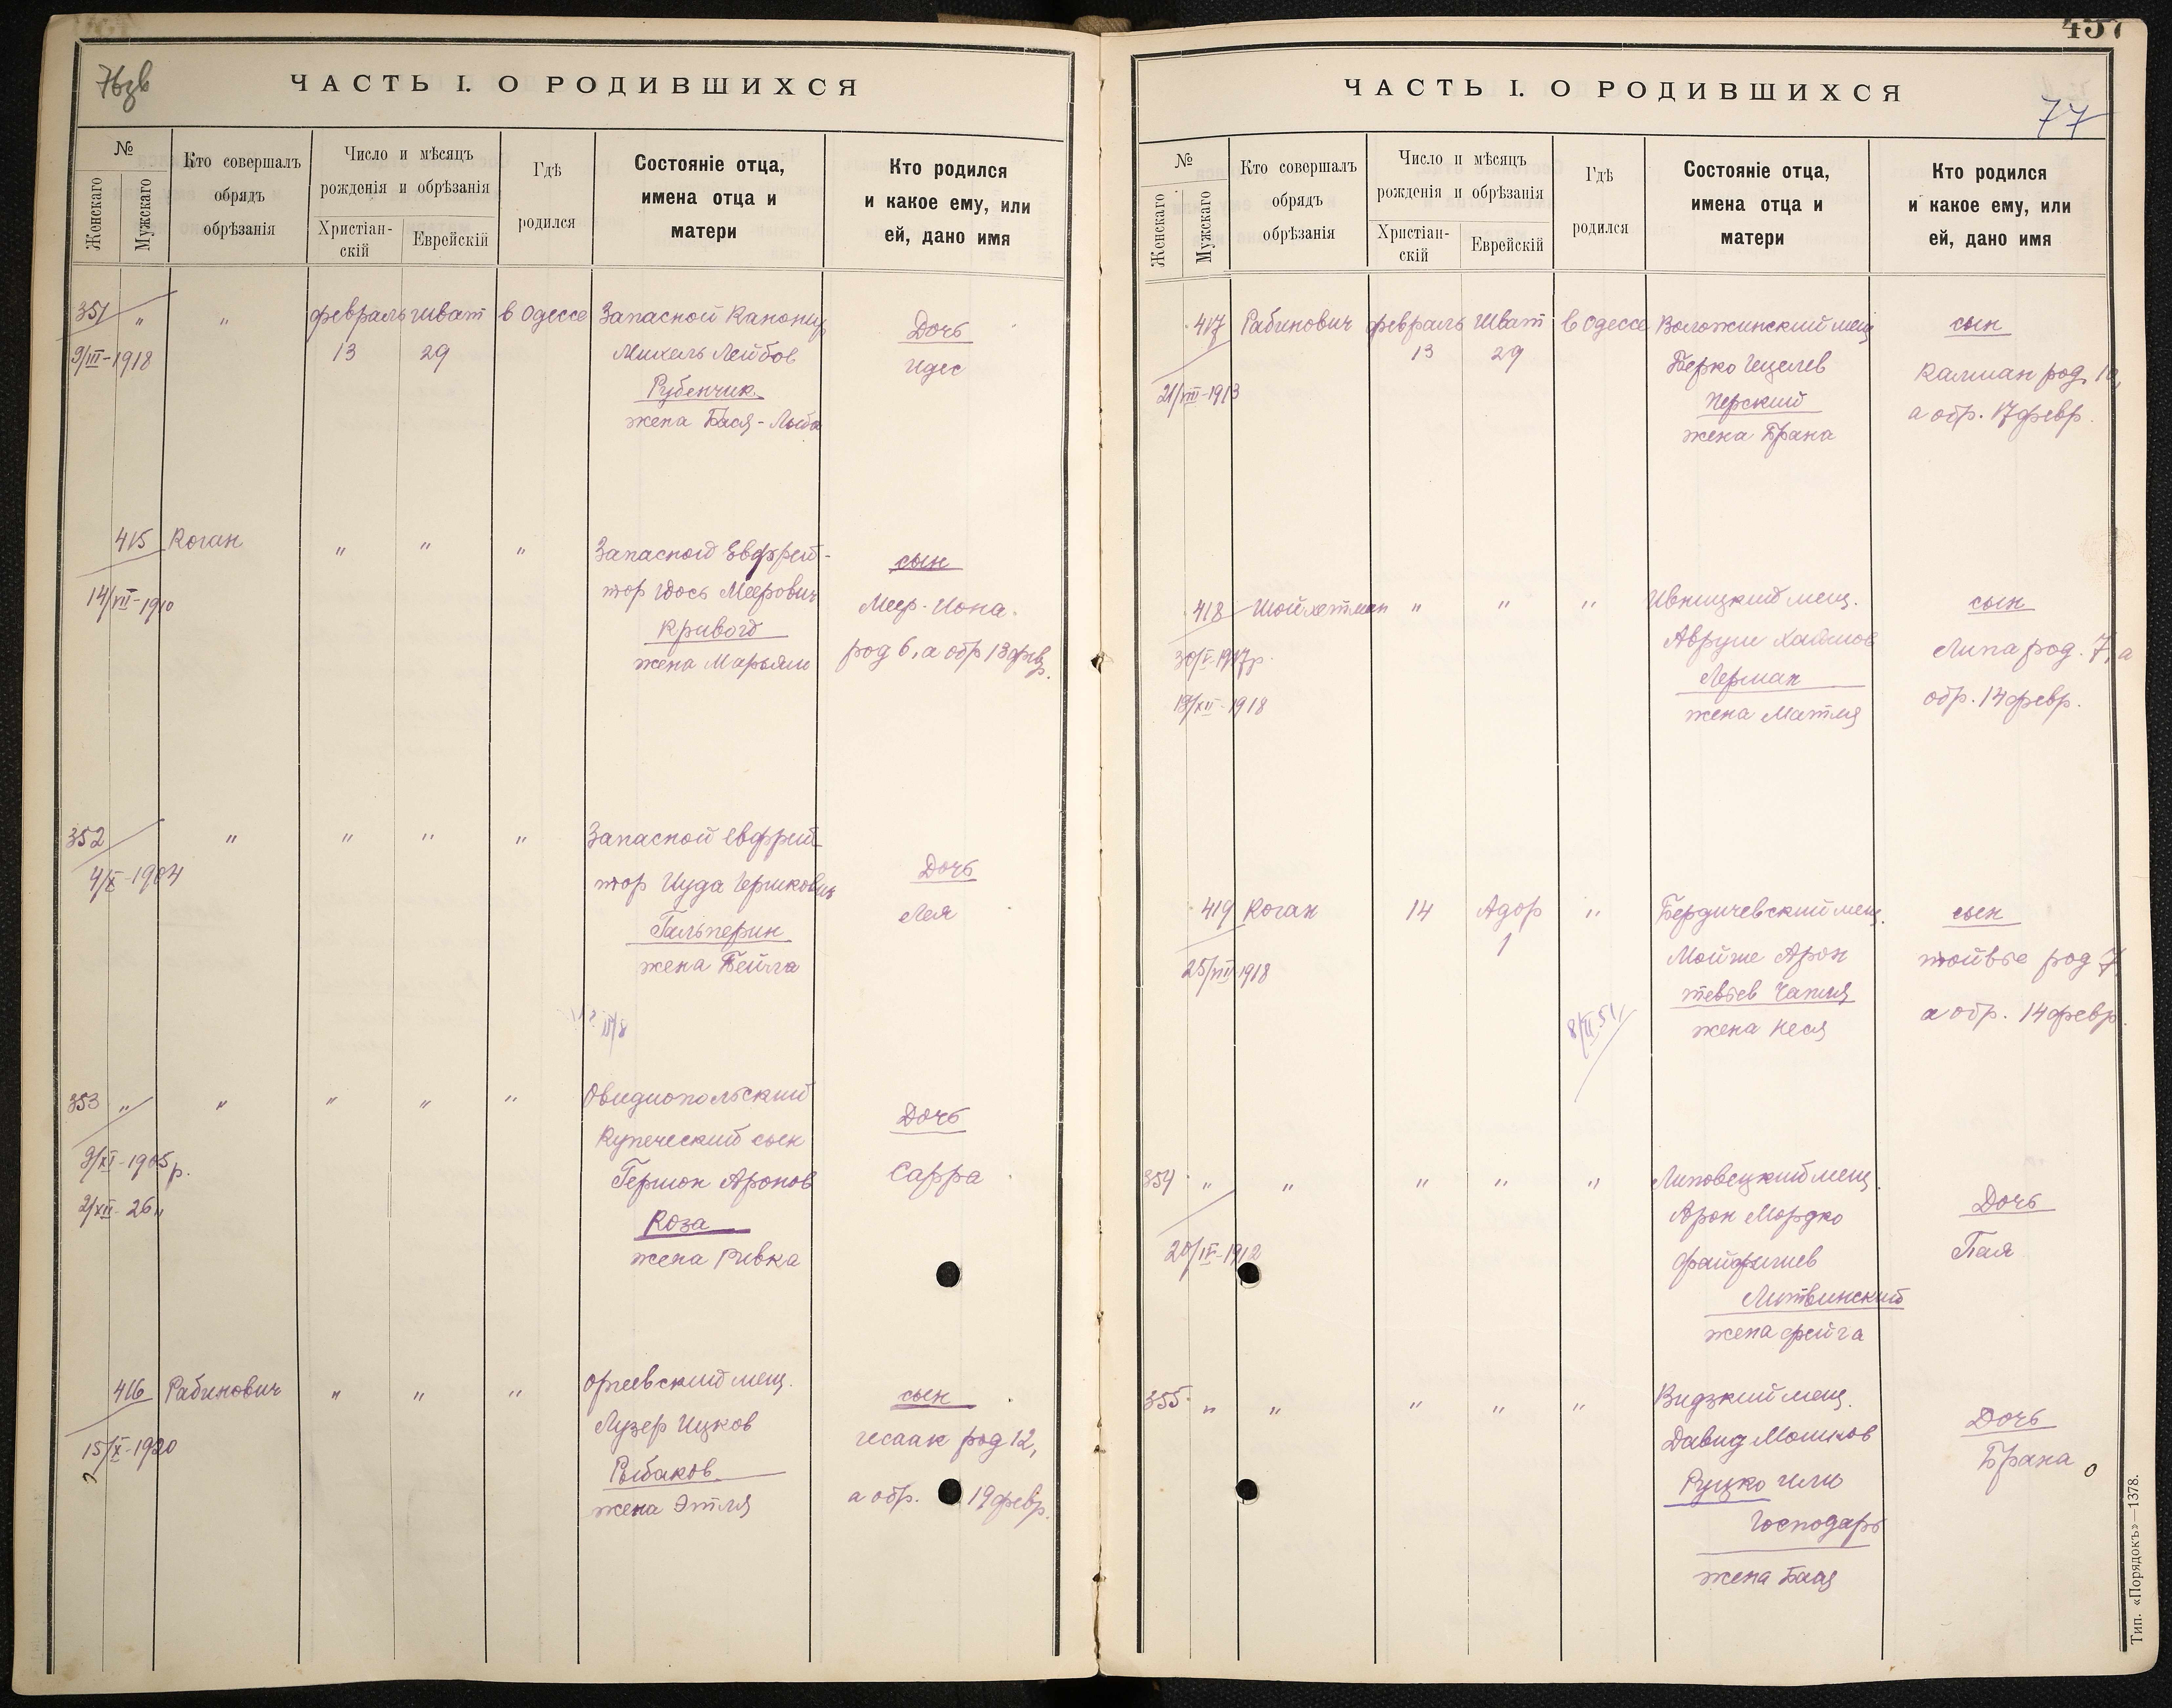 76зв
ЧАСТЬ I. О РОДИВШИХСЯ
№
Женскаго
Мужскаго
Кто совершалъ
обрядъ
обрѣзанія
Число и мѣсяцъ
рожденія и обрѣзанія
Христіан-
скій
Еврейскій
Гдѣ
родился
Состояніе отца,
имена отца и
матери
Кто родился
и какое ему, или
ей, дано имя
351 " " февраль Шват в Одессе Запасной Канонир
9/III-1918 13 29 Михель Лейбов
Рубенчик
жена Бася-Лыба
Дочь
Идес
415 Коган " " " Запасной Евфрей-
14/VII-1910 тор Иось Меерович
Кривой
жена Марьям
сын
Меер-Иона.
род 6, а обр 13 фев.
352 " " " " Запасной Евфрей-
4/X-1904 тор Иуда Гершкович
Гальперин
жена Бейла
Дочь
Лея
353 " " " " " Овидиопольский
9/XI-1905 р. Купеческий сын
2/XII-26 " Гершон Аронов
Коза
жена Ривка
Дочь
Сарра
416 Рабинович " " " Оргеевский мещ.
15/X-1920 Лузер Ицков
Рыбаков
жена Этля
сын
Исаак род 12,
а обр. 19 февр.
457
ЧАСТЬ I. О РОДИВШИХСЯ
77
№
Женскаго
Мужскаго
Кто совершалъ
обрядъ
обрѣзанія
Число и мѣсяцъ
рожденія и обрѣзанія
Христіан-
скій
Еврейскій
Гдѣ
родился
Состояніе отца,
имена отца и
матери
Кто родился
и какое ему, или
ей, дано имя
417 Рабинович февраль Шват в Одессе Воложинский мещ
21/VIII-1913 13 29 Берко Гецелев
Перский
жена Брана
сын
Калман род. 10,
а обр. 17 февр.
418 Шойхетман " " " Ивницкий мещ.
30/V-1917 р. Аврум Хаимов
19/XII-1918 Лерман
жена Матля
сын
Липа род. 7, а
обр. 14 февр.
419 Коган 14 Адор 1 " Бердичевский мещ.
25/VII 1918 Мойше Арон
Тевьев Чапля
8/II 51 жена Неся
сын
Тойвье род 7
а обр. 14 февр.
354 " " " " " Липовецкий мещ.
20/IV-1912 Арон Мордко
Файфишев
Литвинский
жена Фейга
Дочь
Пая
355 " " " " " Видзкий мещ.
Давид Мошков
Руцко или
Господарь
жена Бася
Дочь
Брана
Тип. «Порядокъ»—1378.